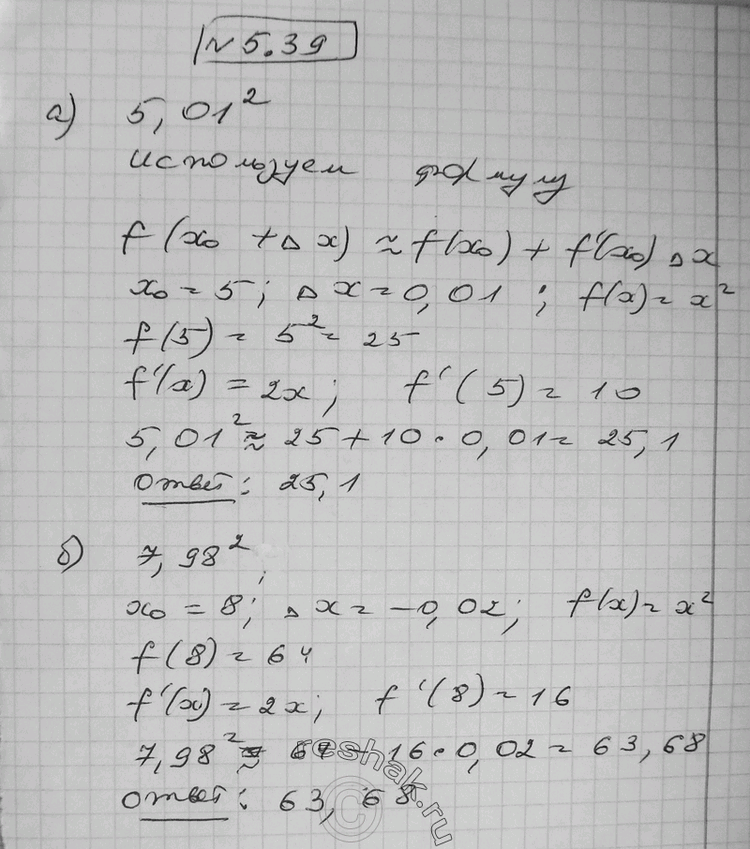 № 5.39
а) 5,01²
используем формулу
f(x₀ + Δx) ≈ f(x₀) + f'(x₀) Δx
x₀ = 5; Δx = 0,01; f(x) = x²
f(5) = 5² = 25
f'(x) = 2x; f'(5) = 10
5,01² ≈ 25 + 10 · 0,01 = 25,1
Ответ: 25,1
б) 7,98²;
x₀ = 8; Δx = -0,02; f(x) = x²
f(8) = 64
f'(x) = 2x; f'(8) = 16
7,98² ≈ 64 - 16 · 0,02 = 63,68
Ответ: 63,68
©reshak.ru